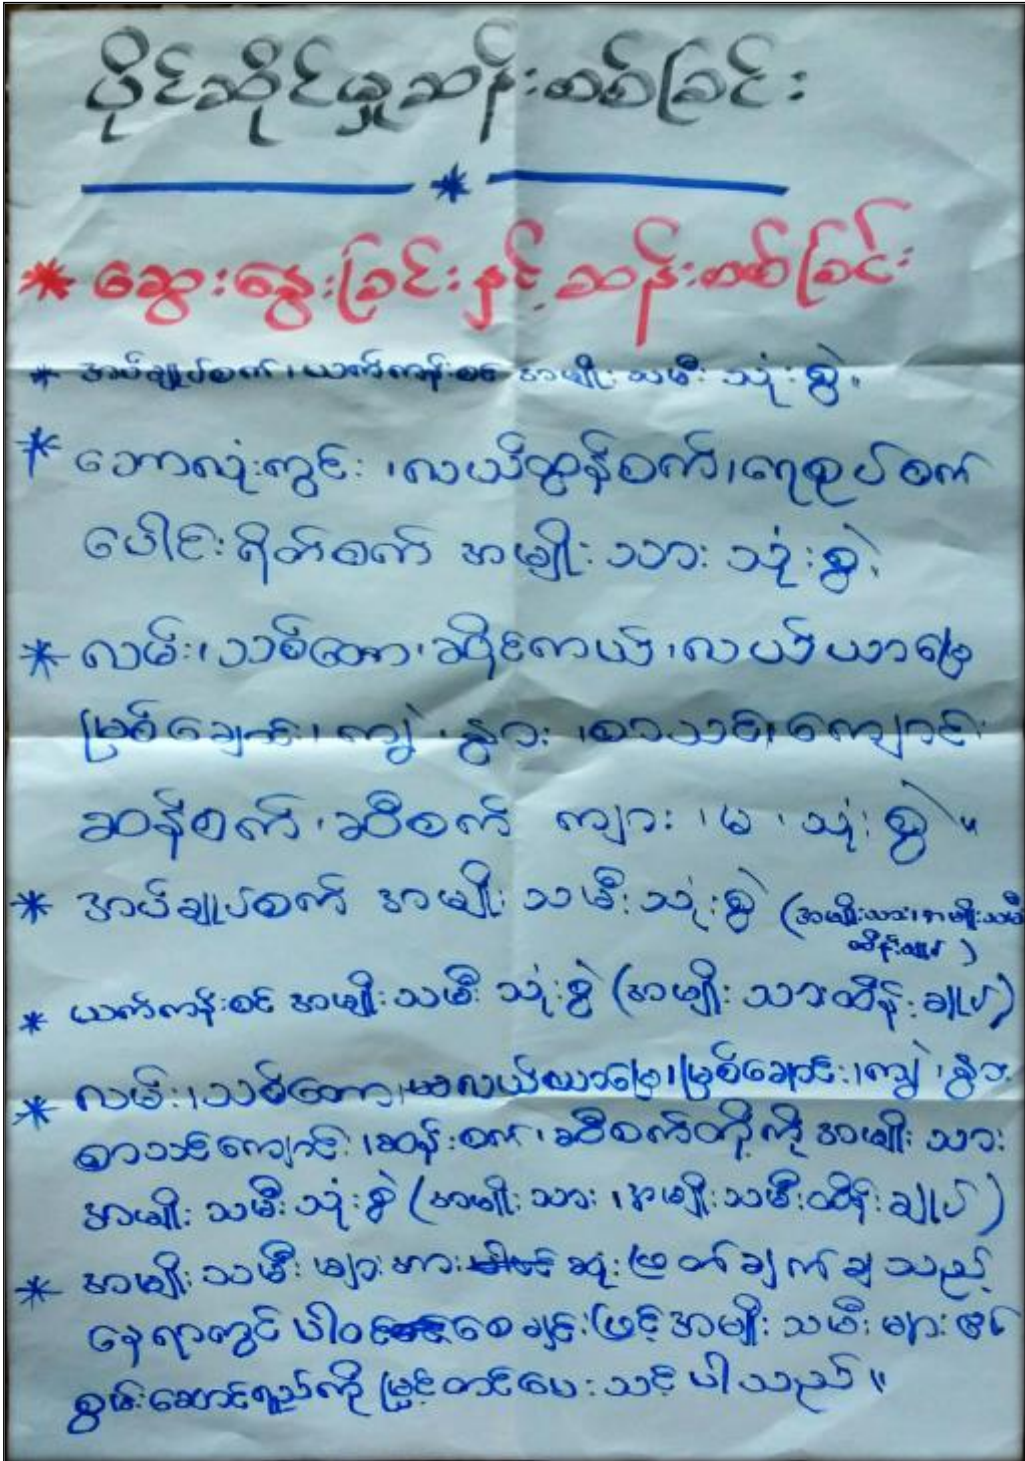 ပိုင်ဆိုင်မှုဆန်းစစ်ခြင်း
* ဆွေးနွေးခြင်းနှင့် ဆန်းစစ်ခြင်း
* အပ်ချုပ်စက်၊ ယက်ကန်းစင် အမျိုးသမီး သုံးစွဲ။
* ဘောလုံးကွင်း၊ လယ်ထွန်စက်၊ ရေစုပ်စက်
ပေါင်းရိတ်စက် အမျိုးသား သုံးစွဲ၊
* လမ်း၊ သစ်တော၊ ဆိုင်ကယ်၊ လယ်ယာမြေ
မြစ်ချောင်း၊ ကျွဲ၊ နွား၊ စာသင်ကျောင်း
ဆန်စက်၊ ဆီစက် ကျား၊ မ၊ သုံးစွဲ။
* အပ်ချုပ်စက် အမျိုးသမီးသုံးစွဲ (အမျိုးသား၊ အမျိုးသမီး
ထိန်းချုပ်)
* ယက်ကန်းစင် အမျိုးသမီး သုံးစွဲ (အမျိုးသားထိန်းချုပ်)
* လမ်း၊ သစ်တော၊ လယ်ယာမြေ၊ မြစ်ချောင်း၊ ကျွဲ၊ နွား
စာသင်ကျောင်း၊ ဆန်းစက်၊ ဆီစက်တို့ကို အမျိုးသား
အမျိုးသမီးသုံးစွဲ (အမျိုးသား၊ အမျိုးသမီးထိန်းချုပ်)
* အမျိုးသမီးများအား ဆုံးဖြတ်ချက်ချသည့်
နေရာတွင် ပါဝင်စေချင်းဖြင့် အမျိုးသမီးများ၏
စွမ်းဆောင်ရည်ကို မြှင့်တင်ပေးသင့်ပါသည်။